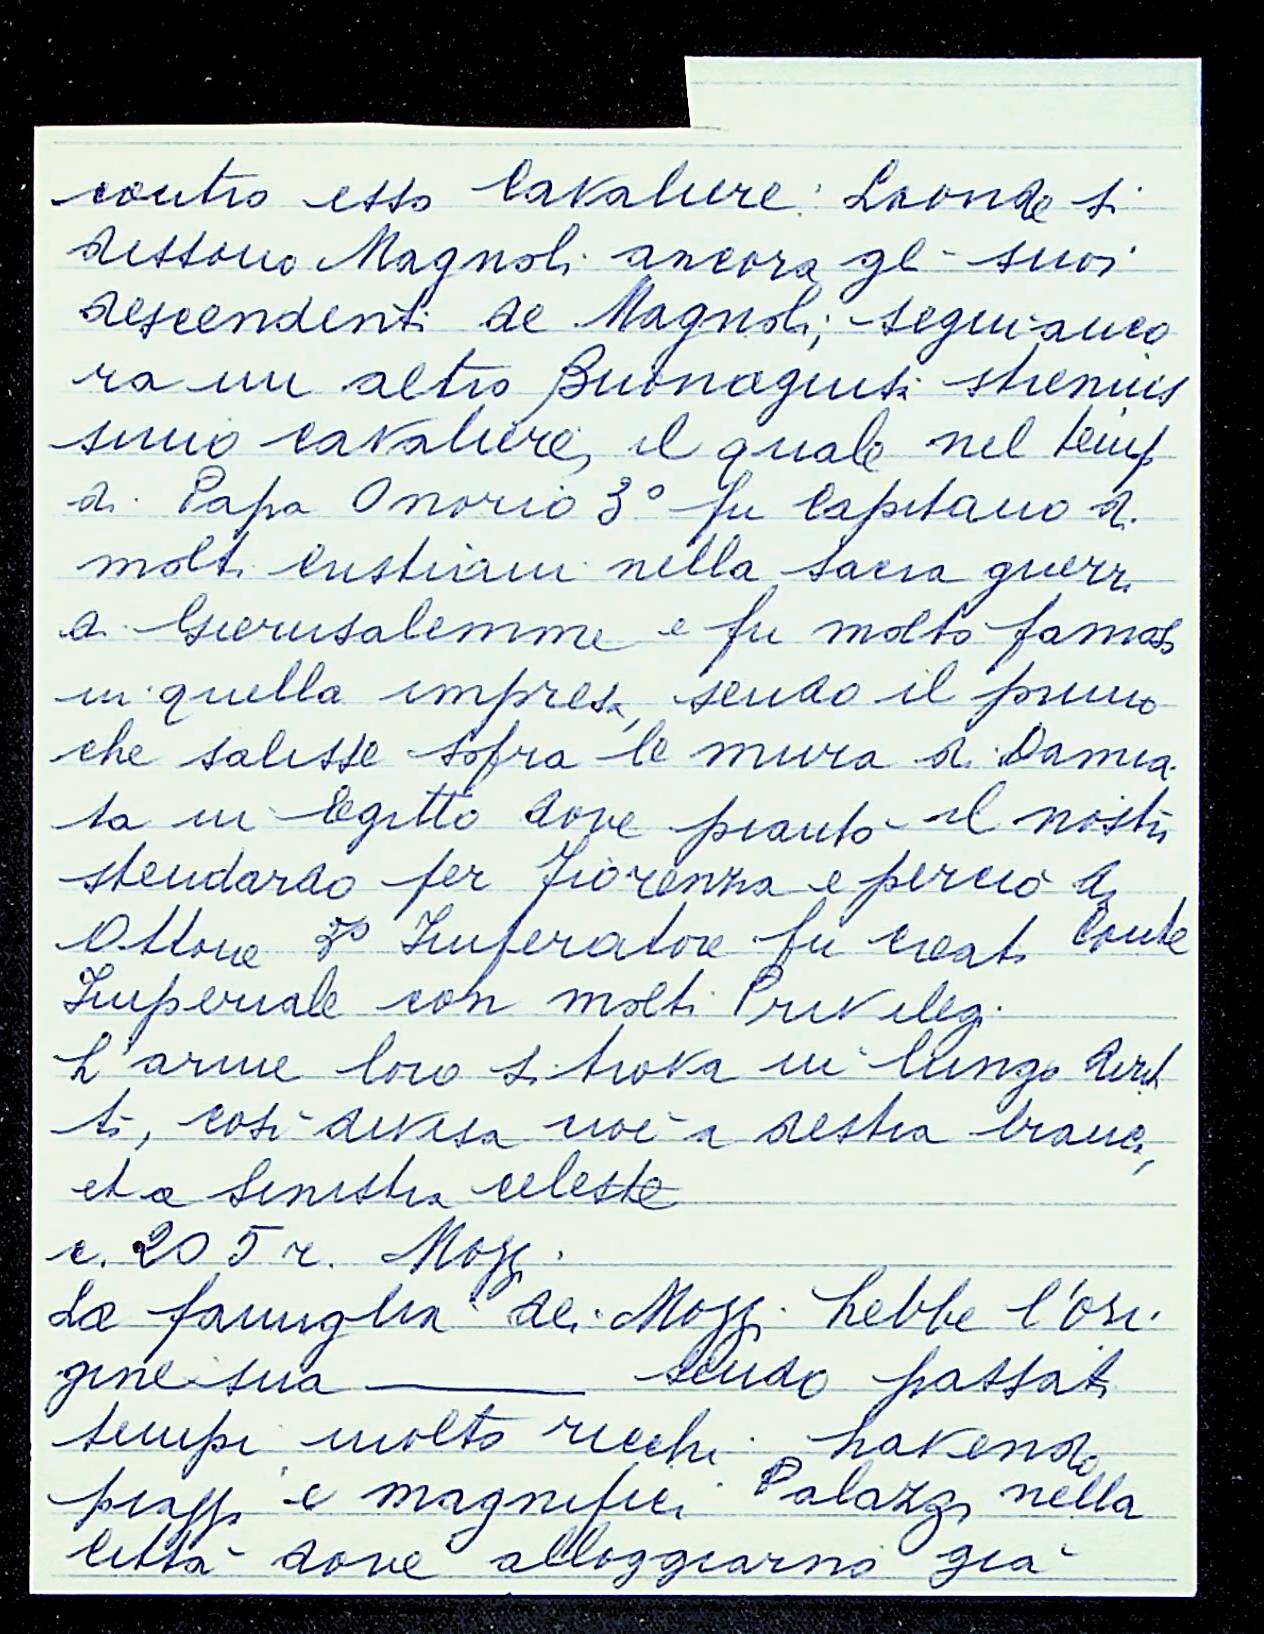 contro esso Cavaliere: Laonde si
dissono Magnoli ancora gl- suoi
descendenti de Magnoli, segui anco
ra un altro Buonagiusi strenuis
simo cavaliere, il quale nel temp
di Papa Onorio 3° fu Capitano di
molti Cristiani nella sacra guerr.
di Gierusalemme e fu molto famoso
in quella impresa, sendo il primo
che salisse sopra le mura di Damia
ta in Egitto dove piantò il nostro
stendardo per Fiorenza e perciò da
Ottone Imperatore fu creato Conte
Imperiale con molti Privilegi.
L'arme loro si trova in lungo dirit
to, così divisa cioè a destra bianca,
et a sinistra celeste
c. 205 r. Mozzi.
La famiglia dei Mozzi hebbe l'ori.
gine sua ——— sendo passati
tempi molto ricchi havendo
piazze e magnifici Palazzi nella
Città dove alloggiarno già